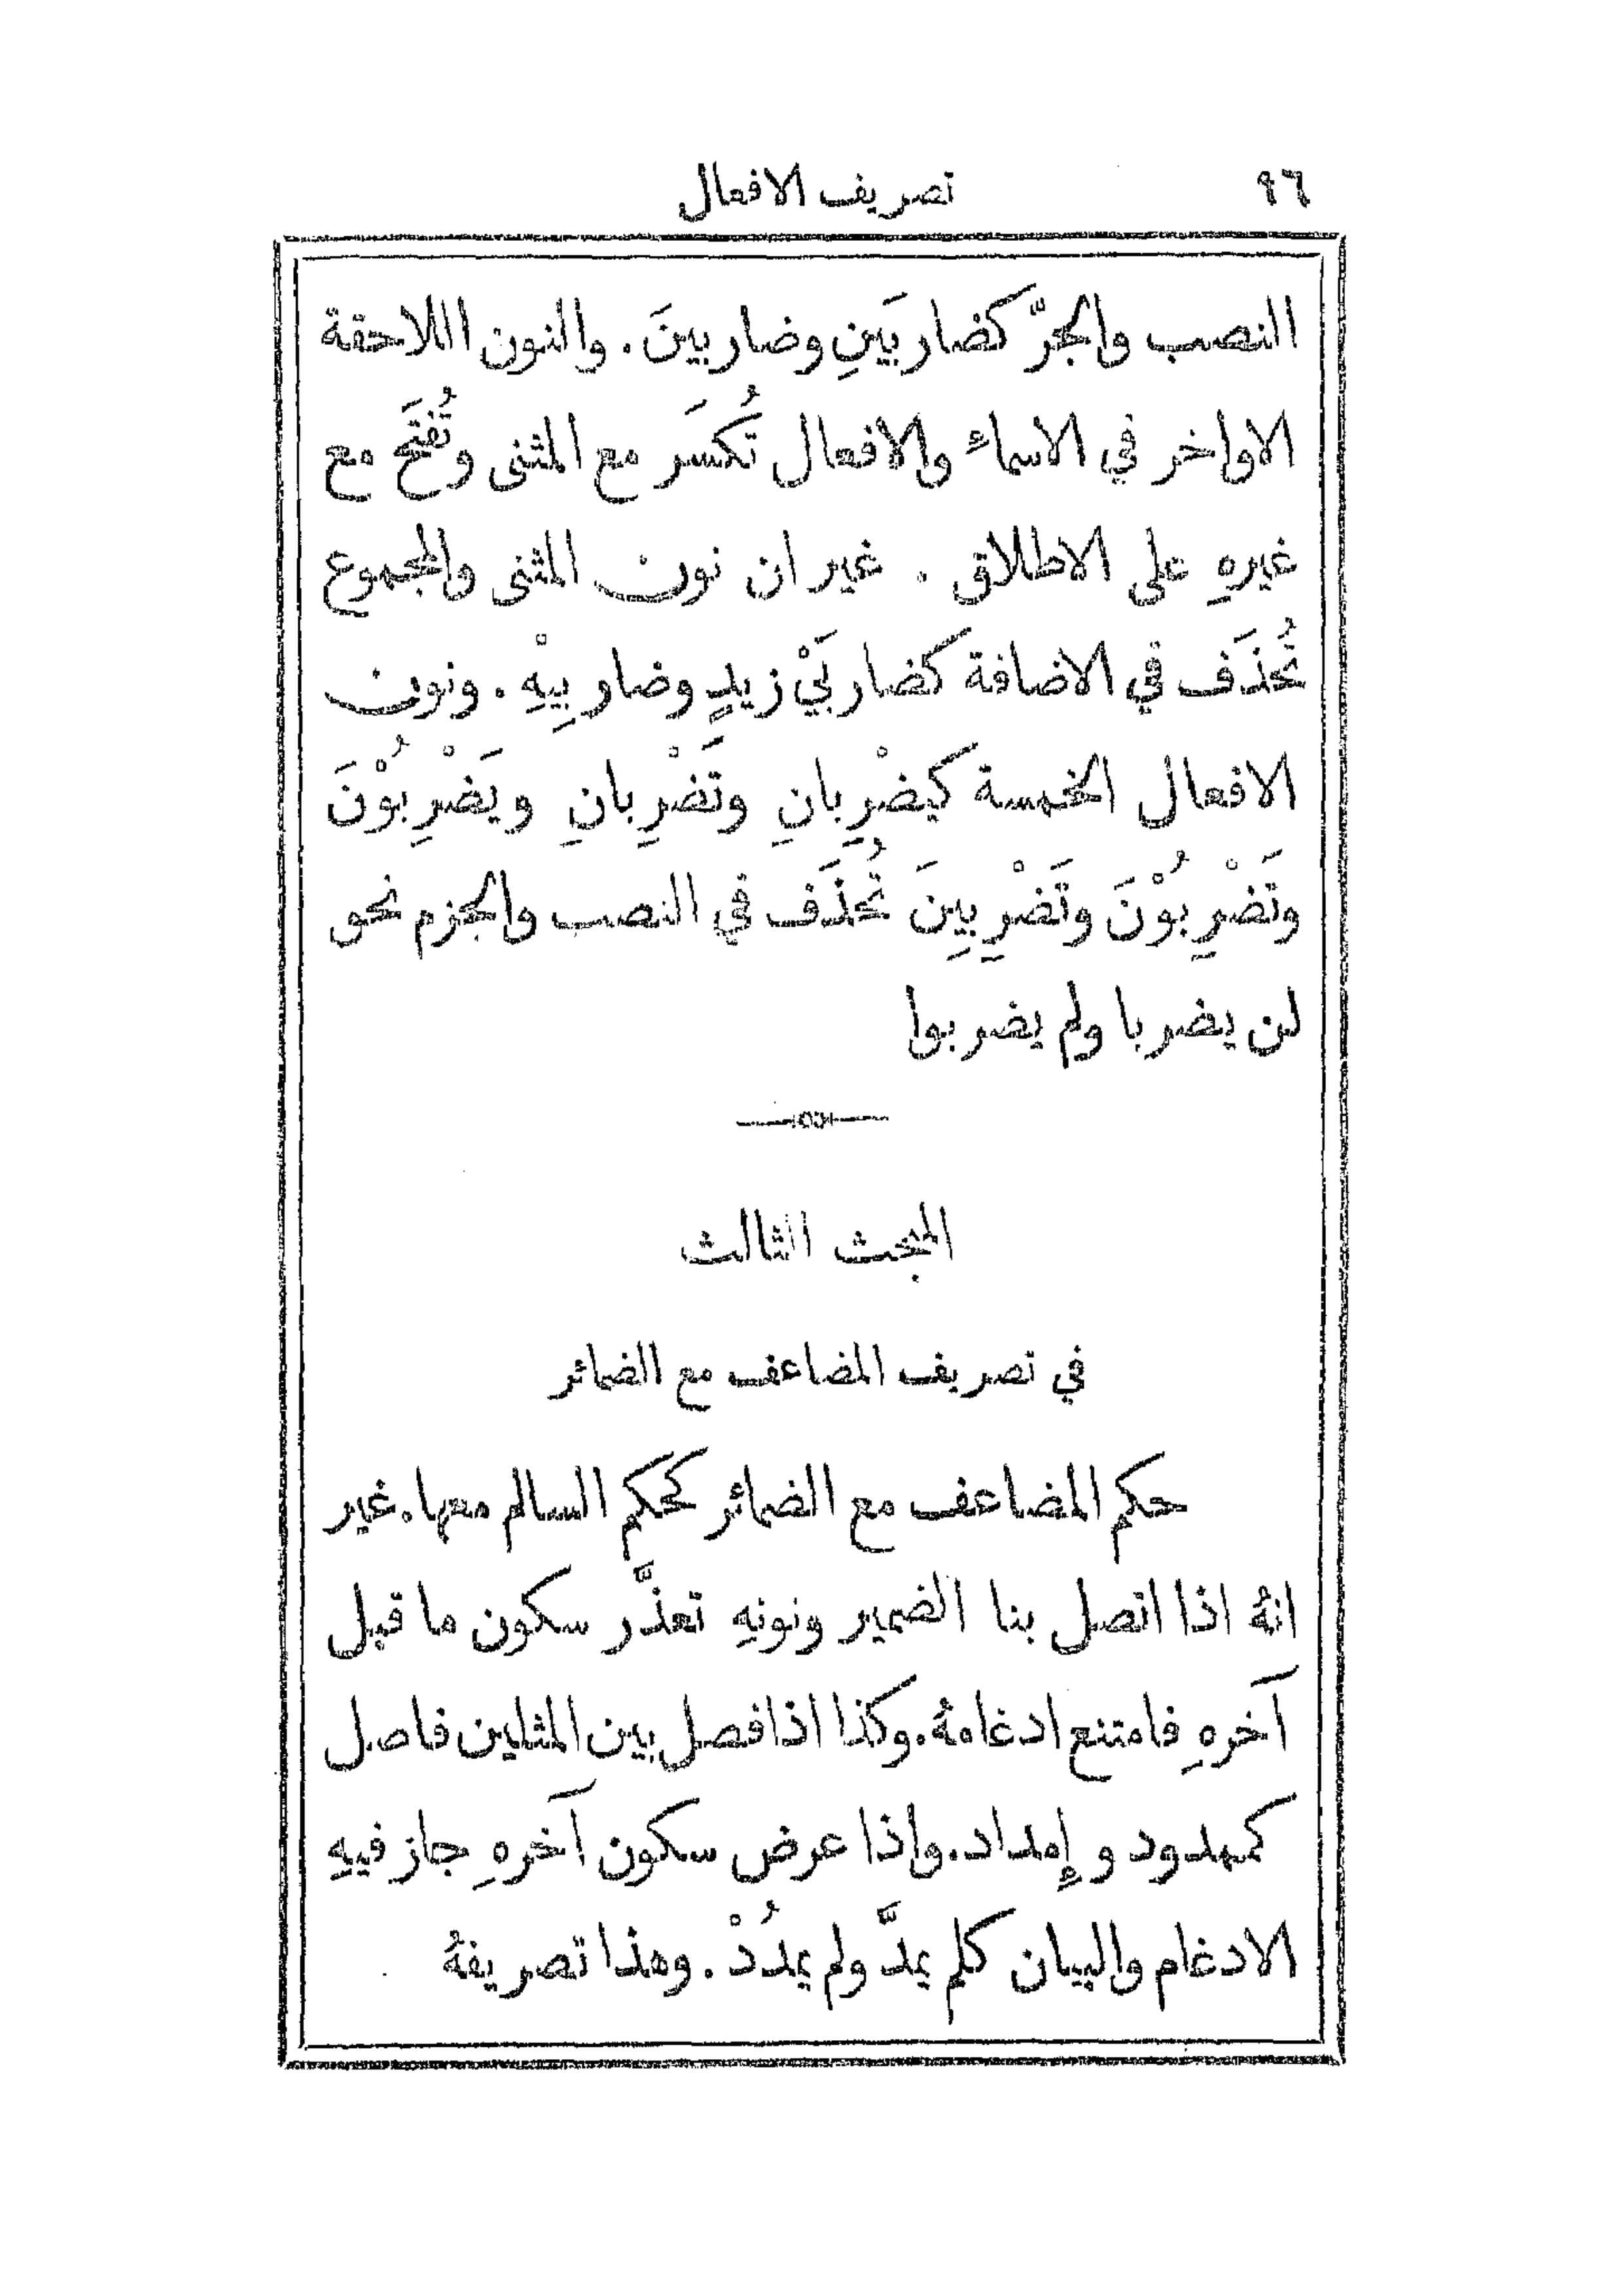 ٩٦ تصريف الافعال
النصب والجرّ كضاربَينِ وضاربينَ. والنون اللاحقة
الاواخر في الاسماءِ والافعال تُكسَر مع المثنى وتُفتَح مع
غيرهِ على الاطلاق. غير ان نون المثنى والمجموع
تُحذَف في الاضافة كضاربَيْ زيدٍ وضاربِيْهِ. ونون
الافعال الخمسة كيضْرِبانِ وتَضْرِبانِ ويَضْرِبُوْنَ
وتَضْرِبُوْنَ وتَضْرِبِينَ تُحذَف في النصب والجزم نحو
لن يضربا ولم يضربوا
المبحث الثالث
في تصريف المضاعف مع الضمائر
حكم المضاعف مع الضمائر كحكم السالم معها. غير
انهُ اذا اتصل بنا الضمير ونونهِ تعذَّر سكون ما قبل
آخرهِ فامتنع ادغامهُ. وكذا اذا فصل بين المثلين فاصل
كمهدود وإمداد. واذا عرض سكون آخرهِ جاز فيهِ
الادغام والبيان كلم يمدَّ ولم يمدُدْ. وهذا تصريفهُ